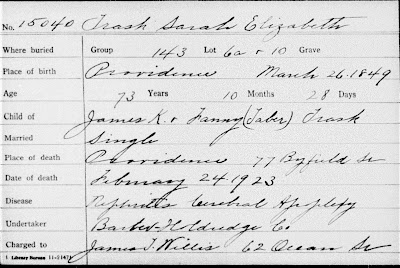 No. 15040 Trask Sarah Elizabeth
Where buried Group 143 Lot 6a + 10 Grave
Place of birth Providence March 26. 1849
Age 73 Years 10 Months 28 Days
Child of James K. + Fanny (Taber) Trask
Married Single
Place of death Providence 77 Byfield St
Date of death February 24. 1923
Disease Nephritis Cerebral Apoplexy
Undertaker Barber-Holdredge Co.
Charged to James T. Willis 62 Ocean St
Library Bureau 11-2147